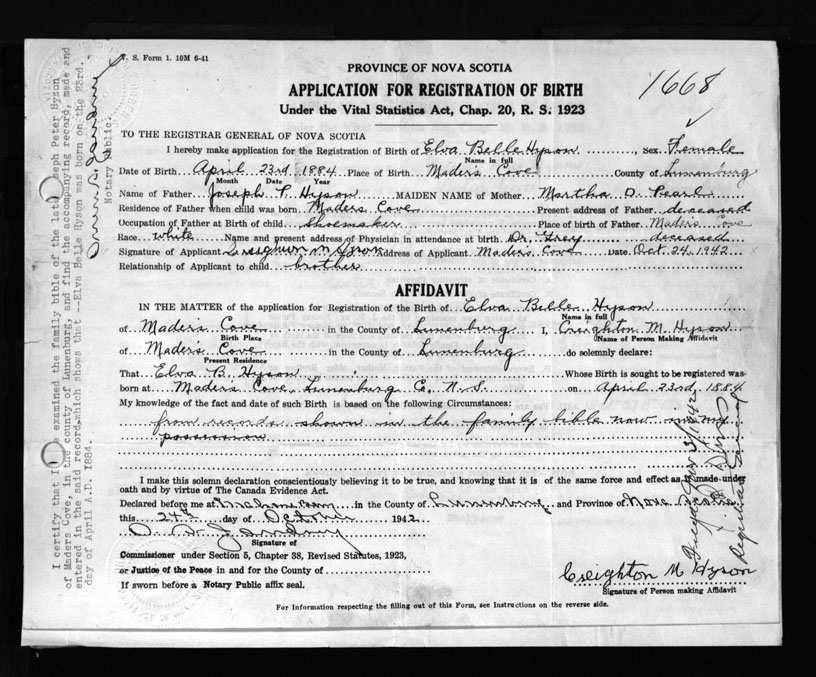 V. S. Form 1. 10M 6-41
PROVINCE OF NOVA SCOTIA
APPLICATION FOR REGISTRATION OF BIRTH
Under the Vital Statistics Act, Chap. 20, R. S. 1923
1668
TO THE REGISTRAR GENERAL OF NOVA SCOTIA
I hereby make application for the Registration of Birth of Elva Belle Hyson, Sex Female
Name in full
Date of Birth April 23rd 1884 Place of Birth Maders Cove County of Lunenburg
Month Date Year
Name of Father Joseph P. Hyson MAIDEN NAME of Mother Martha D. Pearl
Residence of Father when child was born Maders Cove Present address of Father deceased
Occupation of Father at Birth of child Shoemaker Place of birth of Father Maders Cove
Race white Name and present address of Physician in attendance at birth Dr. Grey deceased
Signature of Applicant Creighton M Hyson Address of Applicant Maders Cove Date Oct 24, 1942
Relationship of Applicant to child brother
AFFIDAVIT
IN THE MATTER of the application for Registration of the Birth of Elva Belle Hyson
Name in full
of Maders Cove in the County of Lunenburg I, Creighton M. Hyson
Birth Place Name of Person Making Affidavit
of Maders Cove in the County of Lunenburg do solemnly declare:
Present Residence
That Elva B. Hyson Whose Birth is sought to be registered was
born at Maders Cove, Lunenburg Co. N. S. on April 23rd, 1884
My knowledge of the fact and date of such Birth is based on the following Circumstances:
from records shown in the family bible now in my
possession
I make this solemn declaration conscientiously believing it to be true, and knowing that it is of the same force and effect as if made under
oath and by virtue of The Canada Evidence Act.
Declared before me at Mahone Bay in the County of Lunenburg and Province of Nova Scotia
this 24th day of October 1942
Signature of
Commissioner under Section 5, Chapter 38, Revised Statutes, 1923,
or Justice of the Peace in and for the County of
If sworn before a Notary Public affix seal.
Creighton M Hyson
Signature of Person making Affidavit
For Information respecting the filling out of this Form, see Instructions on the reverse side.
I certify that I have examined the family bible of the late Joseph Peter Hyson
of Maders Cove, in the county of Lunenburg, and find the accompanying record, made and
entered in the said record, which shows that --Elva Belle Hyson was born on the 23rd.
day of April A.D. 1884.
Notary Public.
1942
Registrar General